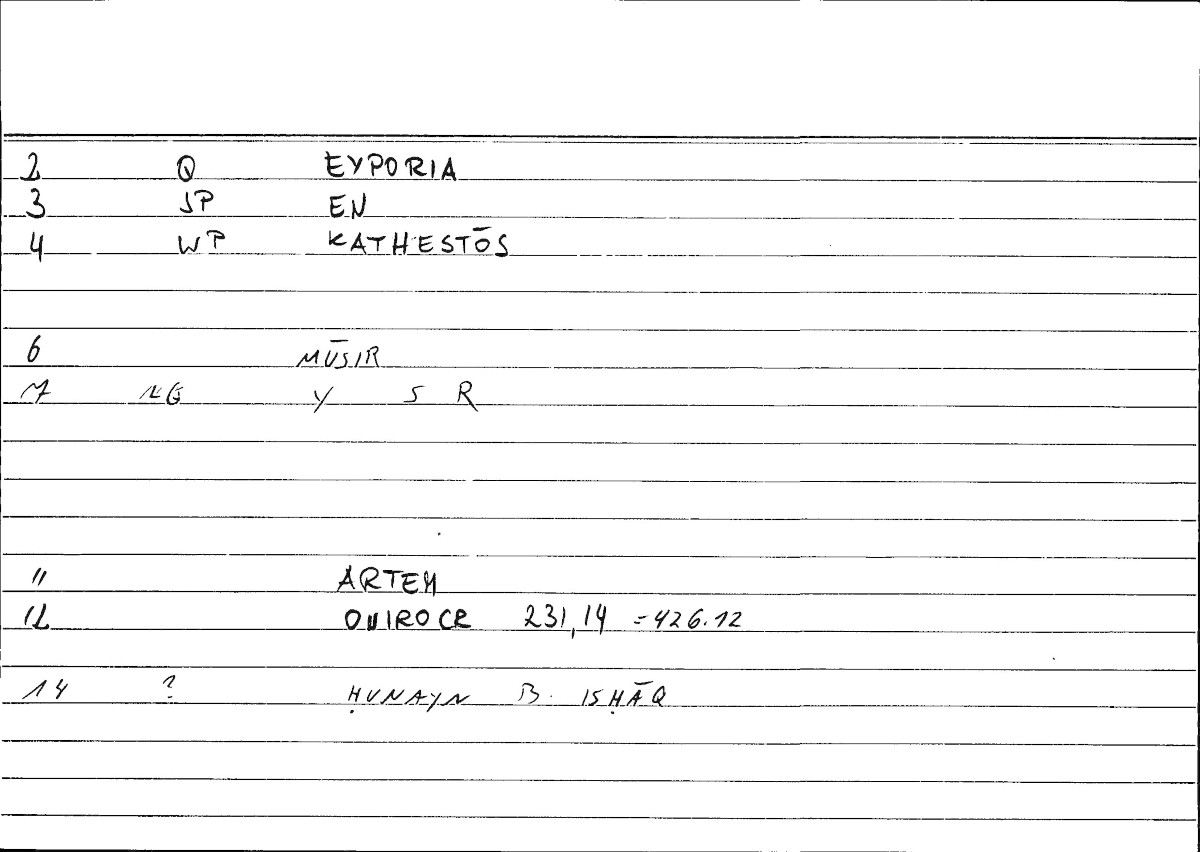 2 Q EYPORIA
3 JP EN
4 WP KATHESTŌS
6 MŪSIR
7 NG Y S R
11 ARTEM
12 ONIROCR 231,14 = 426.12
14 ? ḤUNAYN B. ISḤĀQ